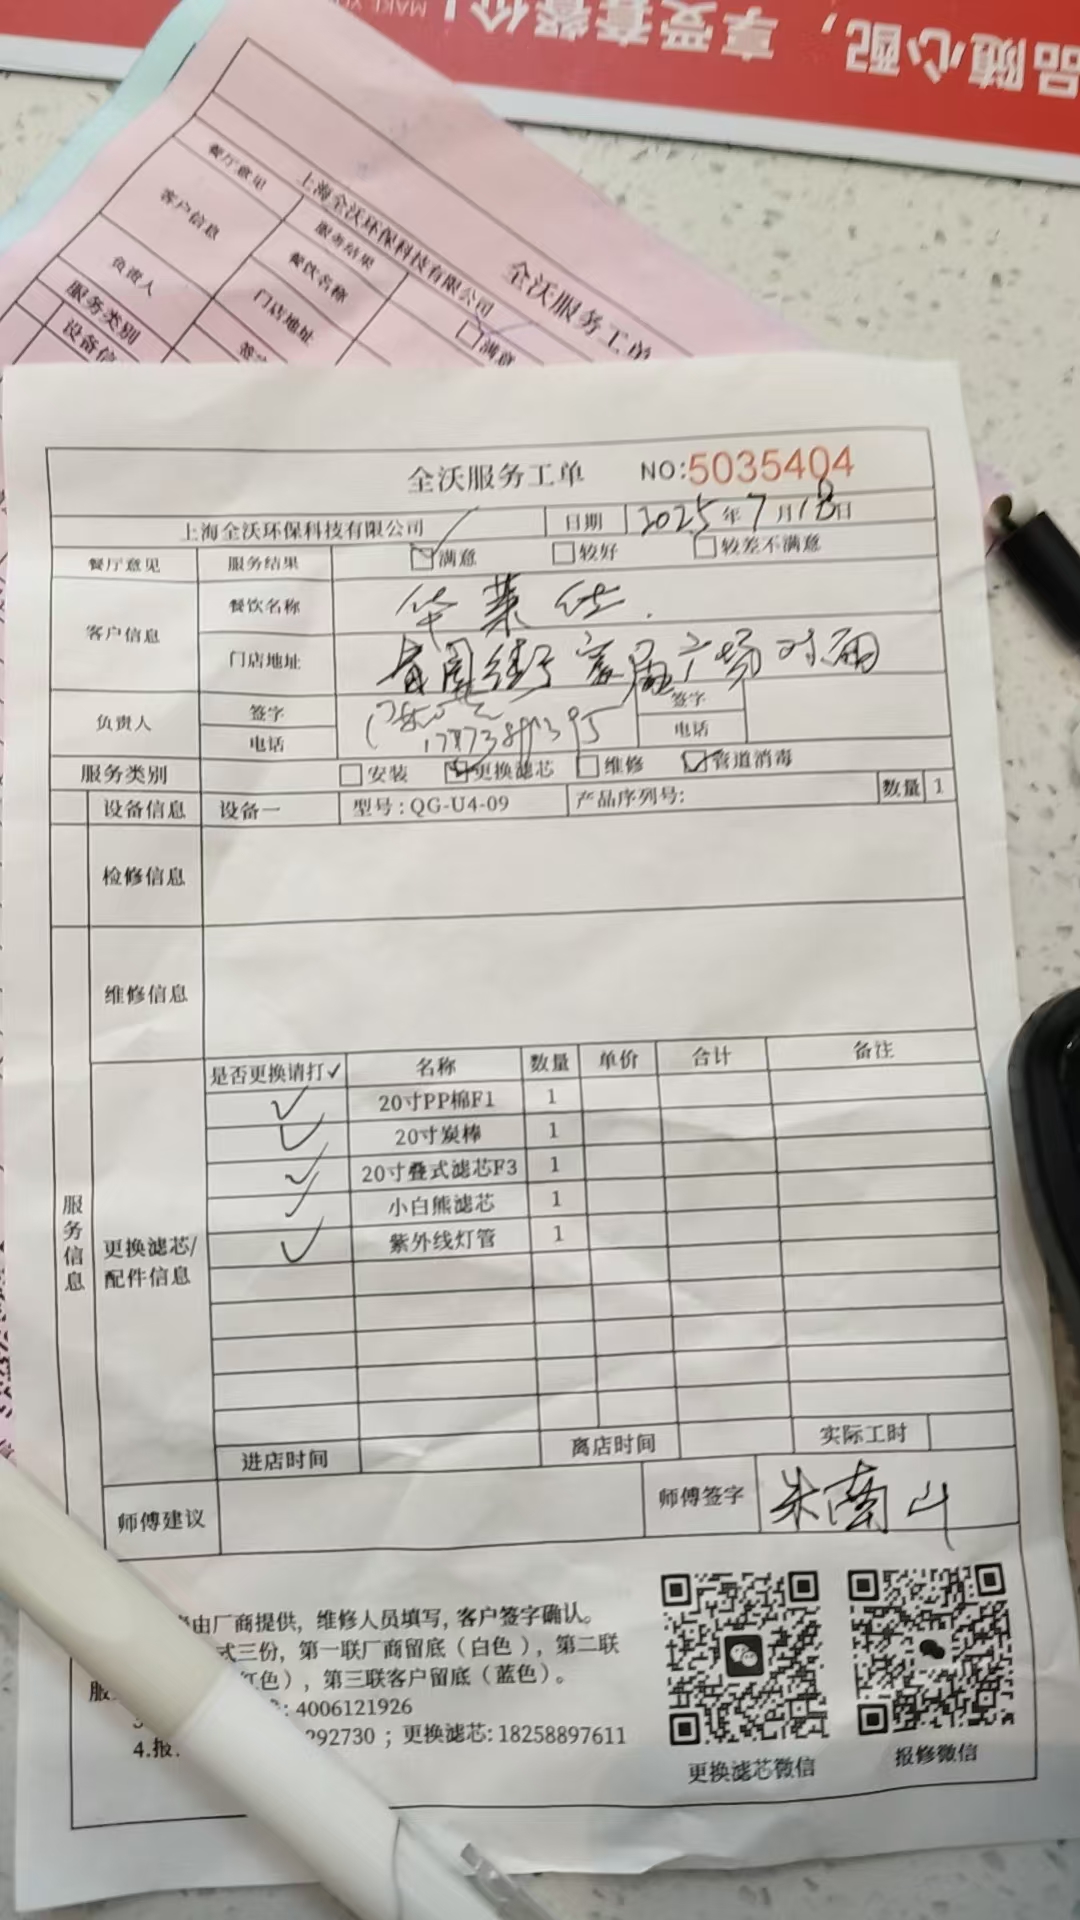 品随心配，享受套餐价！
MAKE YO
全沃服务工单
上海全沃环保科技有限公司
餐厅意见 服务结果 满意
客户信息 餐饮名称
门店地址
负责人
服务类别
全沃服务工单 NO:5035404
上海全沃环保科技有限公司 日期 2025年7月18日
餐厅意见 服务结果 满意 较好 较差不满意
客户信息 餐饮名称 华莱仕.
门店地址 街家居广场对面
负责人 签字 签字
电话 电话
服务类别 安装 更换滤芯 维修 管道消毒
设备信息 设备一 型号:QG-U4-09 产品序列号: 数量 1
检修信息
维修信息
服务信息
更换滤芯/配件信息
是否更换请打✓ 名称 数量 单价 合计 备注
✓ 20寸PP棉F1 1
✓ 20寸炭棒 1
✓ 20寸叠式滤芯F3 1
✓ 小白熊滤芯 1
✓ 紫外线灯管 1
进店时间 离店时间 实际工时
师傅建议 师傅签字 朱南山
由厂商提供，维修人员填写，客户签字确认。
式三份，第一联厂商留底（白色），第二联
红色），第三联客户留底（蓝色）。
: 4006121926
4.报 292730；更换滤芯:18258897611
更换滤芯微信 报修微信